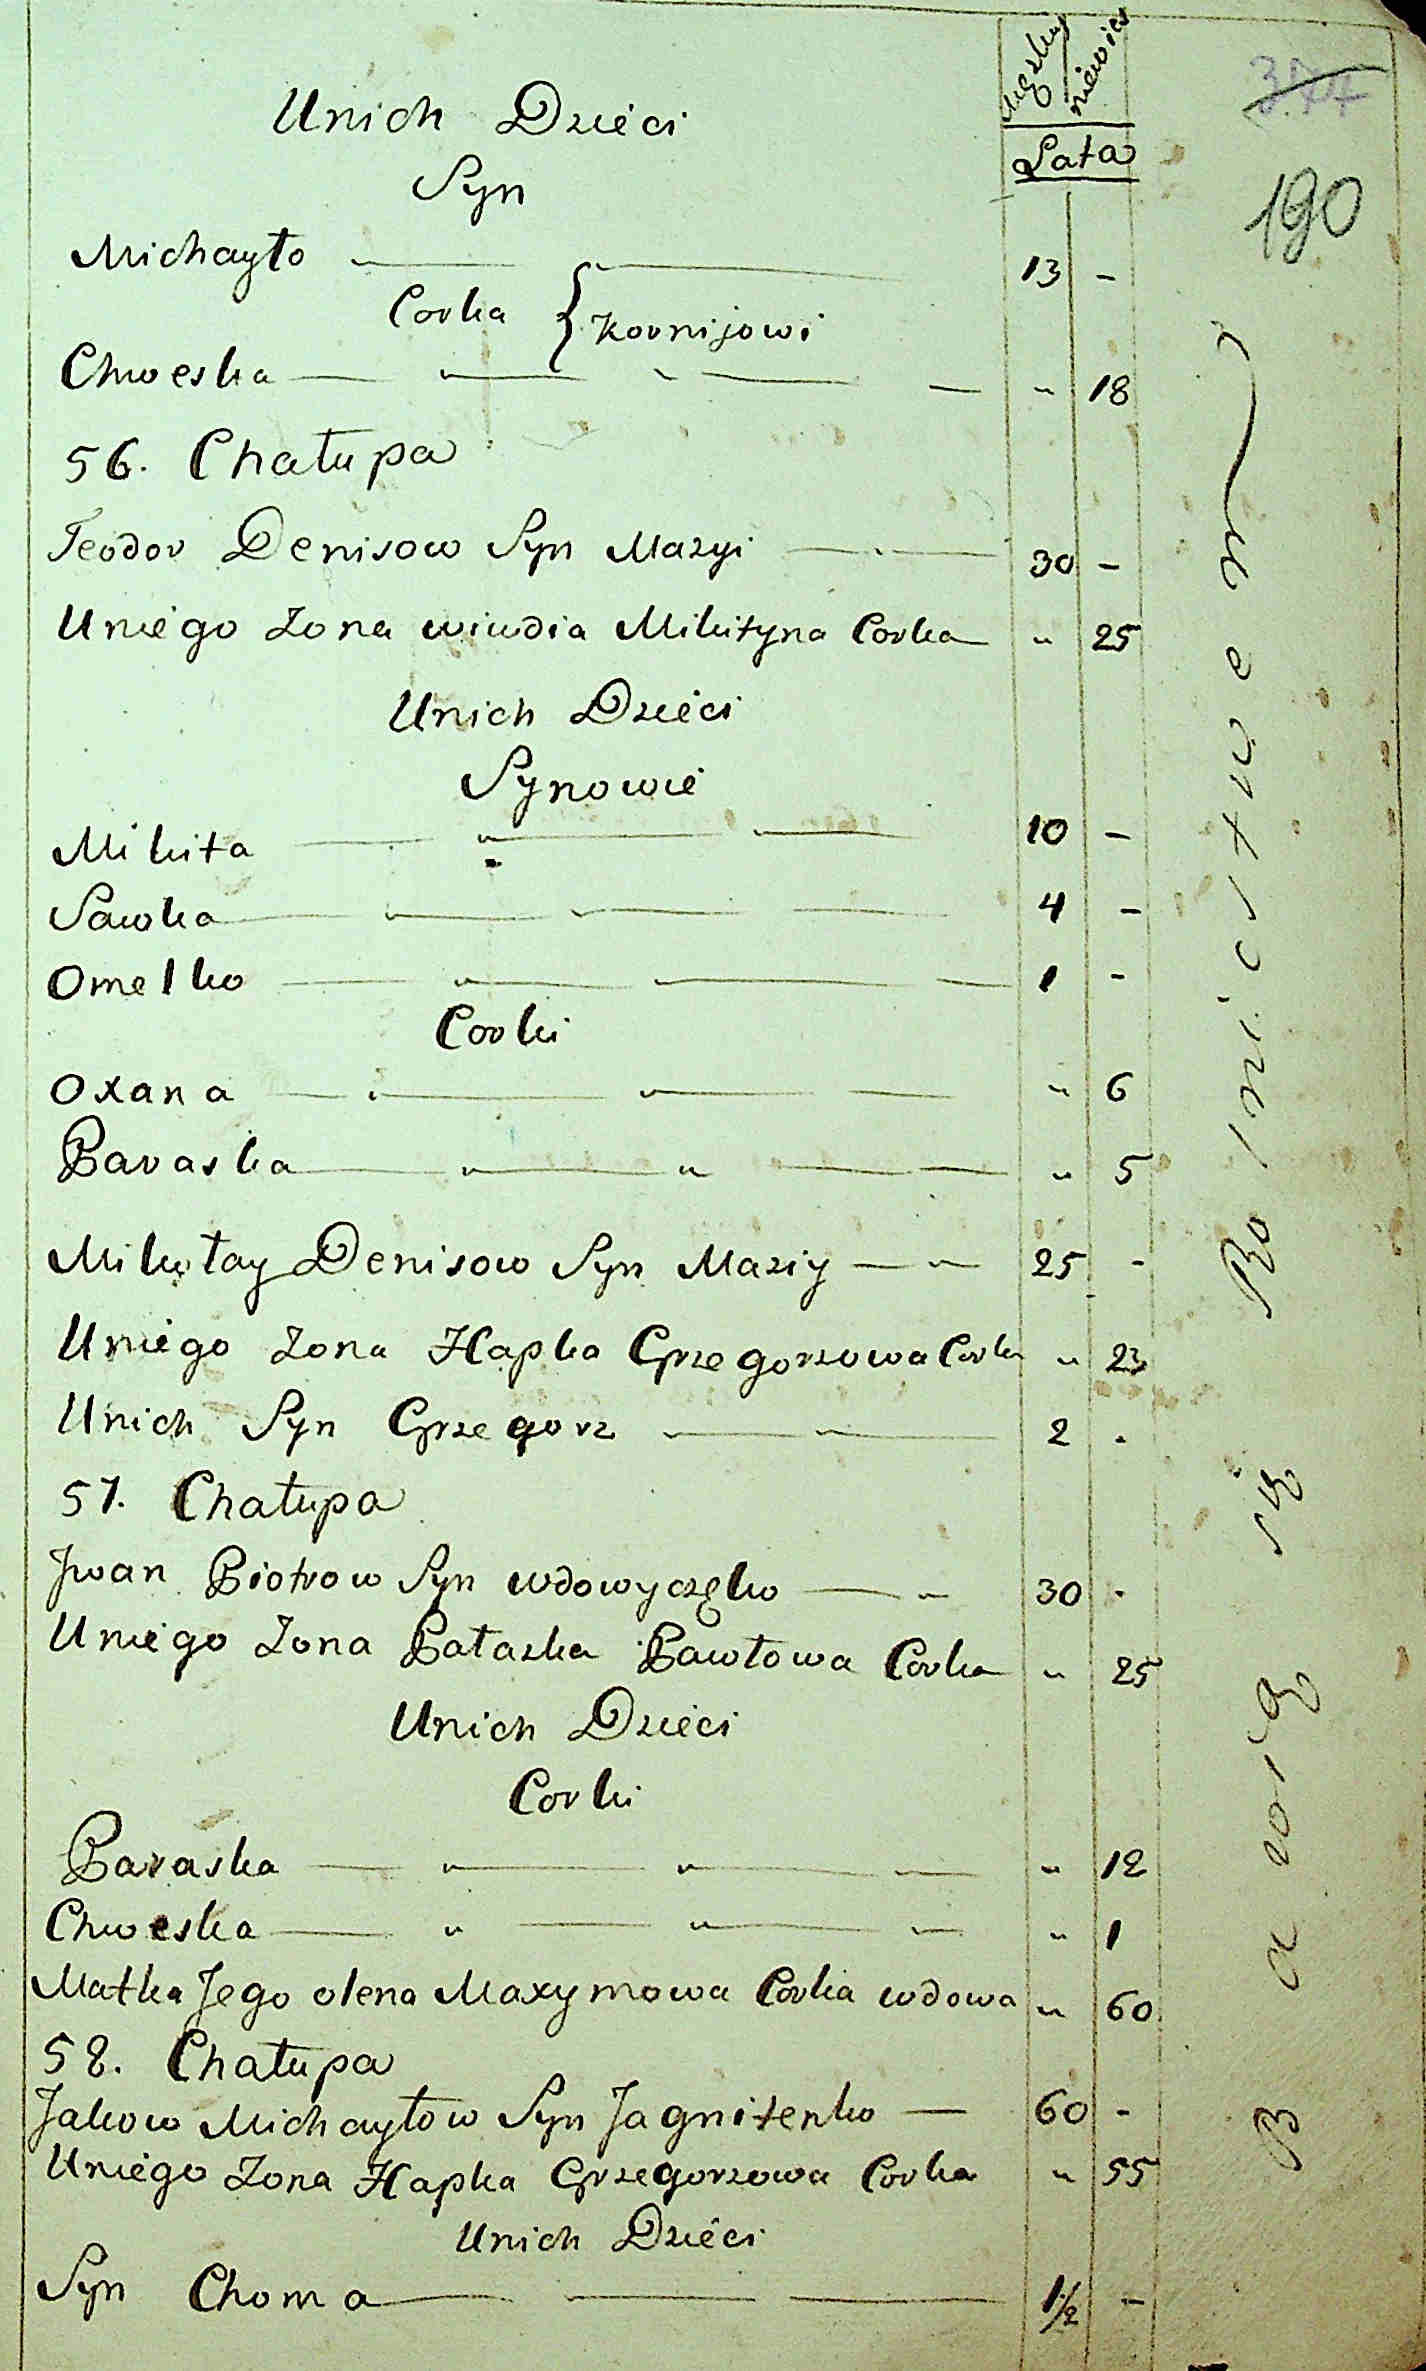 Męzkiey niewies
Lata
377
190
Unich Dzieci
Syn
Michayło 13 -
Corka { Kornijowi
Chweska " 18
56. Chałupa
Teodor Denisow Syn Mazyi 30 -
Uniego Zona wiwdia Mikityna Corka " 25
Unich Dzieci
Synowie
Mikita 10 -
Sawka 4 -
Omelko 1 -
Corki
Oxana " 6
Paraska " 5
Mikołay Denisow Syn Maziy 25 -
Uniego Zona Hapka Grzegorzowa Corka " 23
Unich Syn Grzegorz 2 -
57. Chałupa
Jwan Piotrow Syn wdowyczęko 30 -
Uniego Zona Pałazka Pawłowa Corka " 25
Unich Dzieci
Corki
Paraska " 12
Chweska " 1
Matka Jego olena Maxymowa Corka wdowa " 60
58. Chałupa
Jakow Michayłow Syn Jagnitenko 60 -
Uniego Zona Hapka Grzegorzowa Corka " 55
Unich Dzieci
Syn Choma 1½ -
Bawią się Rolnictwem